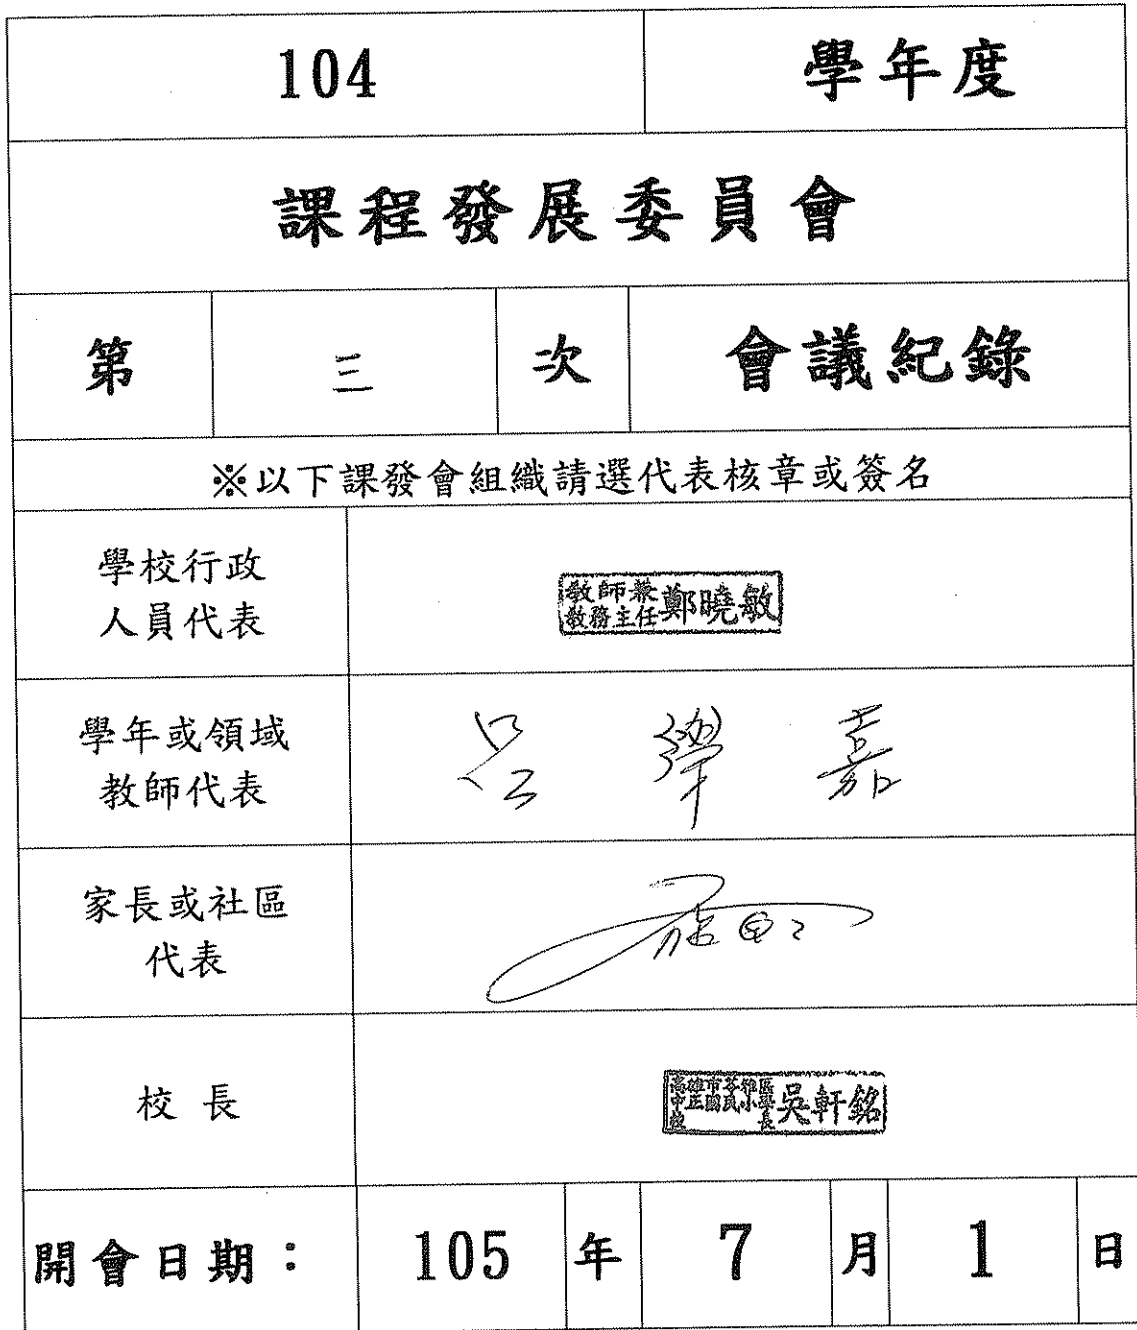 104 學年度
課程發展委員會
第 三 次 會議紀錄
※以下課發會組織請選代表核章或簽名
學校行政
人員代表
教師兼
教務主任 鄭曉敏
學年或領域
教師代表
呂 嘉
家長或社區
代表
校 長
高雄市苓雅區
中正國民小學
校長 吳軒銘
開會日期： 105 年 7 月 1 日